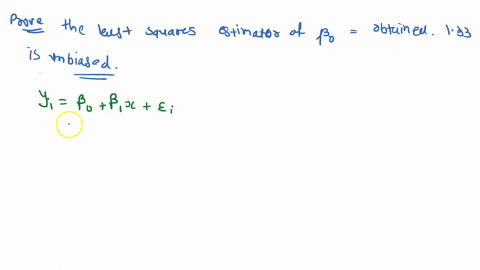 Prove the least squares estimator of β₀ = obtained. 1.33
is unbiased.
y₁ = β₀ + β₁x + εᵢ